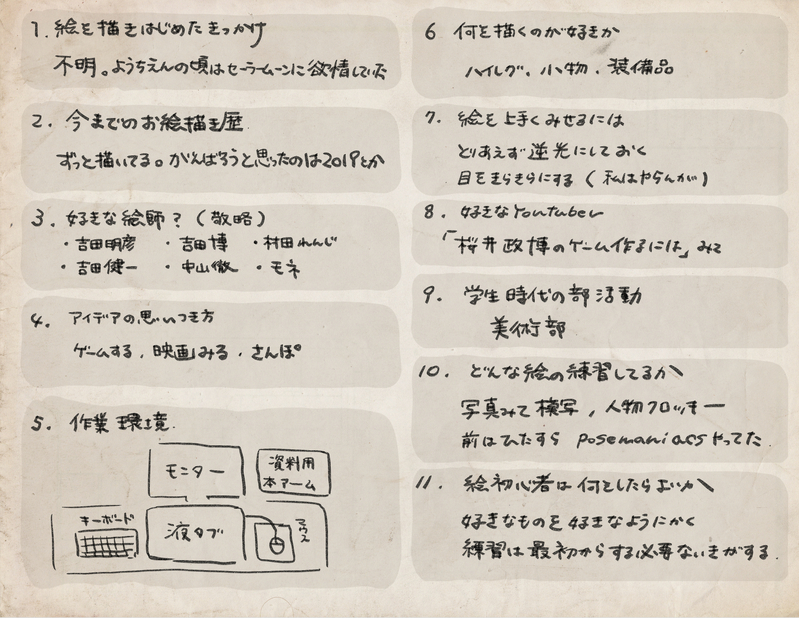 1. 絵を描きはじめたきっかけ
不明。ようちえんの頃はセーラームーンに欲情していた
2. 今までのお絵描き歴
ずっと描いてる。がんばろうと思ったのは2019とか
3. 好きな絵師？(敬略)
・吉田明彦 ・吉田博 ・村田れんじ
・吉田健一 ・中山徹 ・モネ
4. アイデアの思いつき方
ゲームする、映画みる、さんぽ
5. 作業環境
モニター
資料用
本アーム
キーボード
液タブ
マウス
6 何を描くのが好きか
ハイレグ、小物、装備品
7. 絵を上手くみせるには
とりあえず逆光にしておく
目をきらきらにする(私はやらんが)
8. 好きなYoutuber
「桜井政博のゲーム作るには」みて
9. 学生時代の部活動
美術部
10. どんな絵の練習してるか
写真みて模写、人物クロッキー
前はひたすら posemaniacsやってた
11. 絵初心者は何をしたらよいか
好きなものを好きなようにかく
練習は最初からする必要ないきがする.